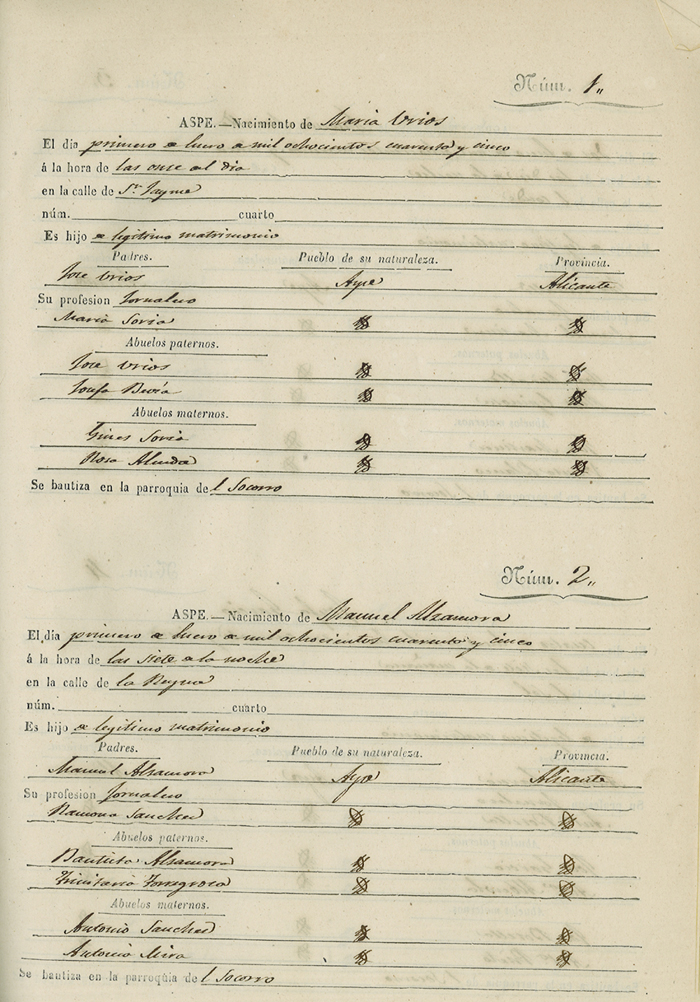 Núm. 1.,
ASPE.—Nacimiento de Maria Urios
El dia primero de Enero de mil ochocientos cuarenta y cinco
á la hora de las onse del dia
en la calle de Sn. Jayme
núm. cuarto
Es hijo de legitimo matrimonio
Padres. Pueblo de su naturaleza. Provincia.
Jose Urios Aspe Alicante
Su profesion Jornalero
Maria Soria
Abuelos paternos.
Jose Urios
Josefa Bevia
Abuelos maternos.
Gines Soria
Rosa
Se bautiza en la parroquia del Socorro
Núm. 2.,
ASPE.—Nacimiento de Manuel Alzamora
El dia primero de Enero de mil ochocientos cuarenta y cinco
á la hora de las siete de la noche
en la calle de la Reyna
núm. cuarto
Es hijo de legitimo matrimonio
Padres. Pueblo de su naturaleza. Provincia.
Manuel Alzamora Aspe Alicante
Su profesion Jornalero
Ramona Sanches
Abuelos paternos.
Bautista Alzamora
Trinitaria Torregrosa
Abuelos maternos.
Antonio Sanches
Antonia Mira
Se bautiza en la parroquia del Socorro